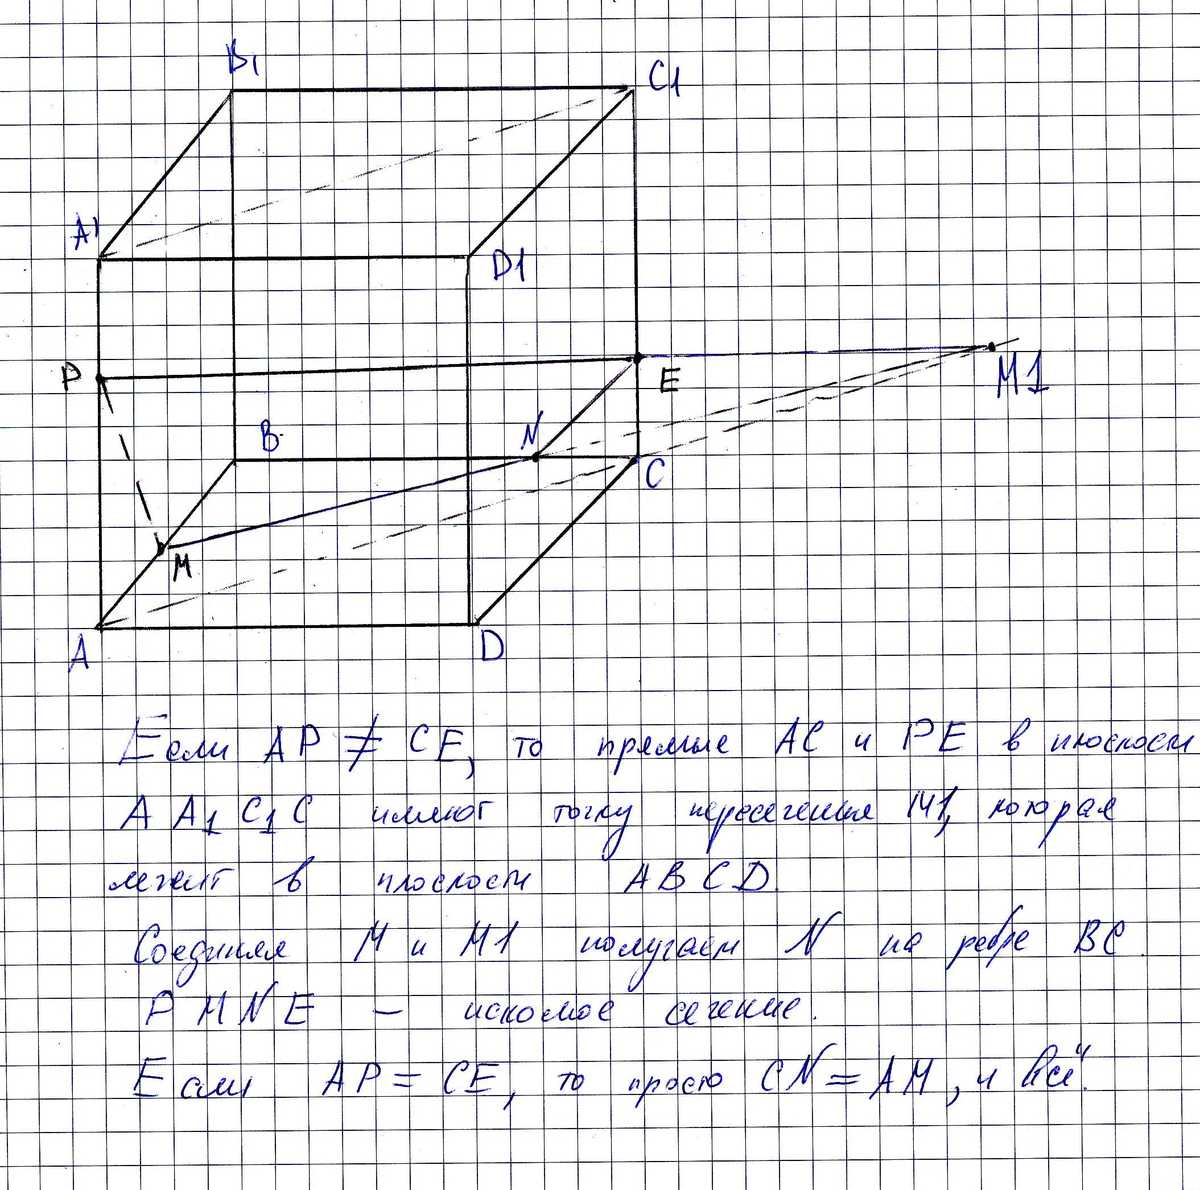 B1
C1
A1
D1
P
E
M1
B
N
C
M
A
D
Если AP ≠ CE, то прямые AC и PE в плоскости
A A1 C1 C имеют точку пересечения M1, которая
лежит в плоскости ABCD.
Соединяя M и M1 получаем N на ребре BC.
PMNE — искомое сечение.
Если AP = CE, то просто CN = AM, и всё.